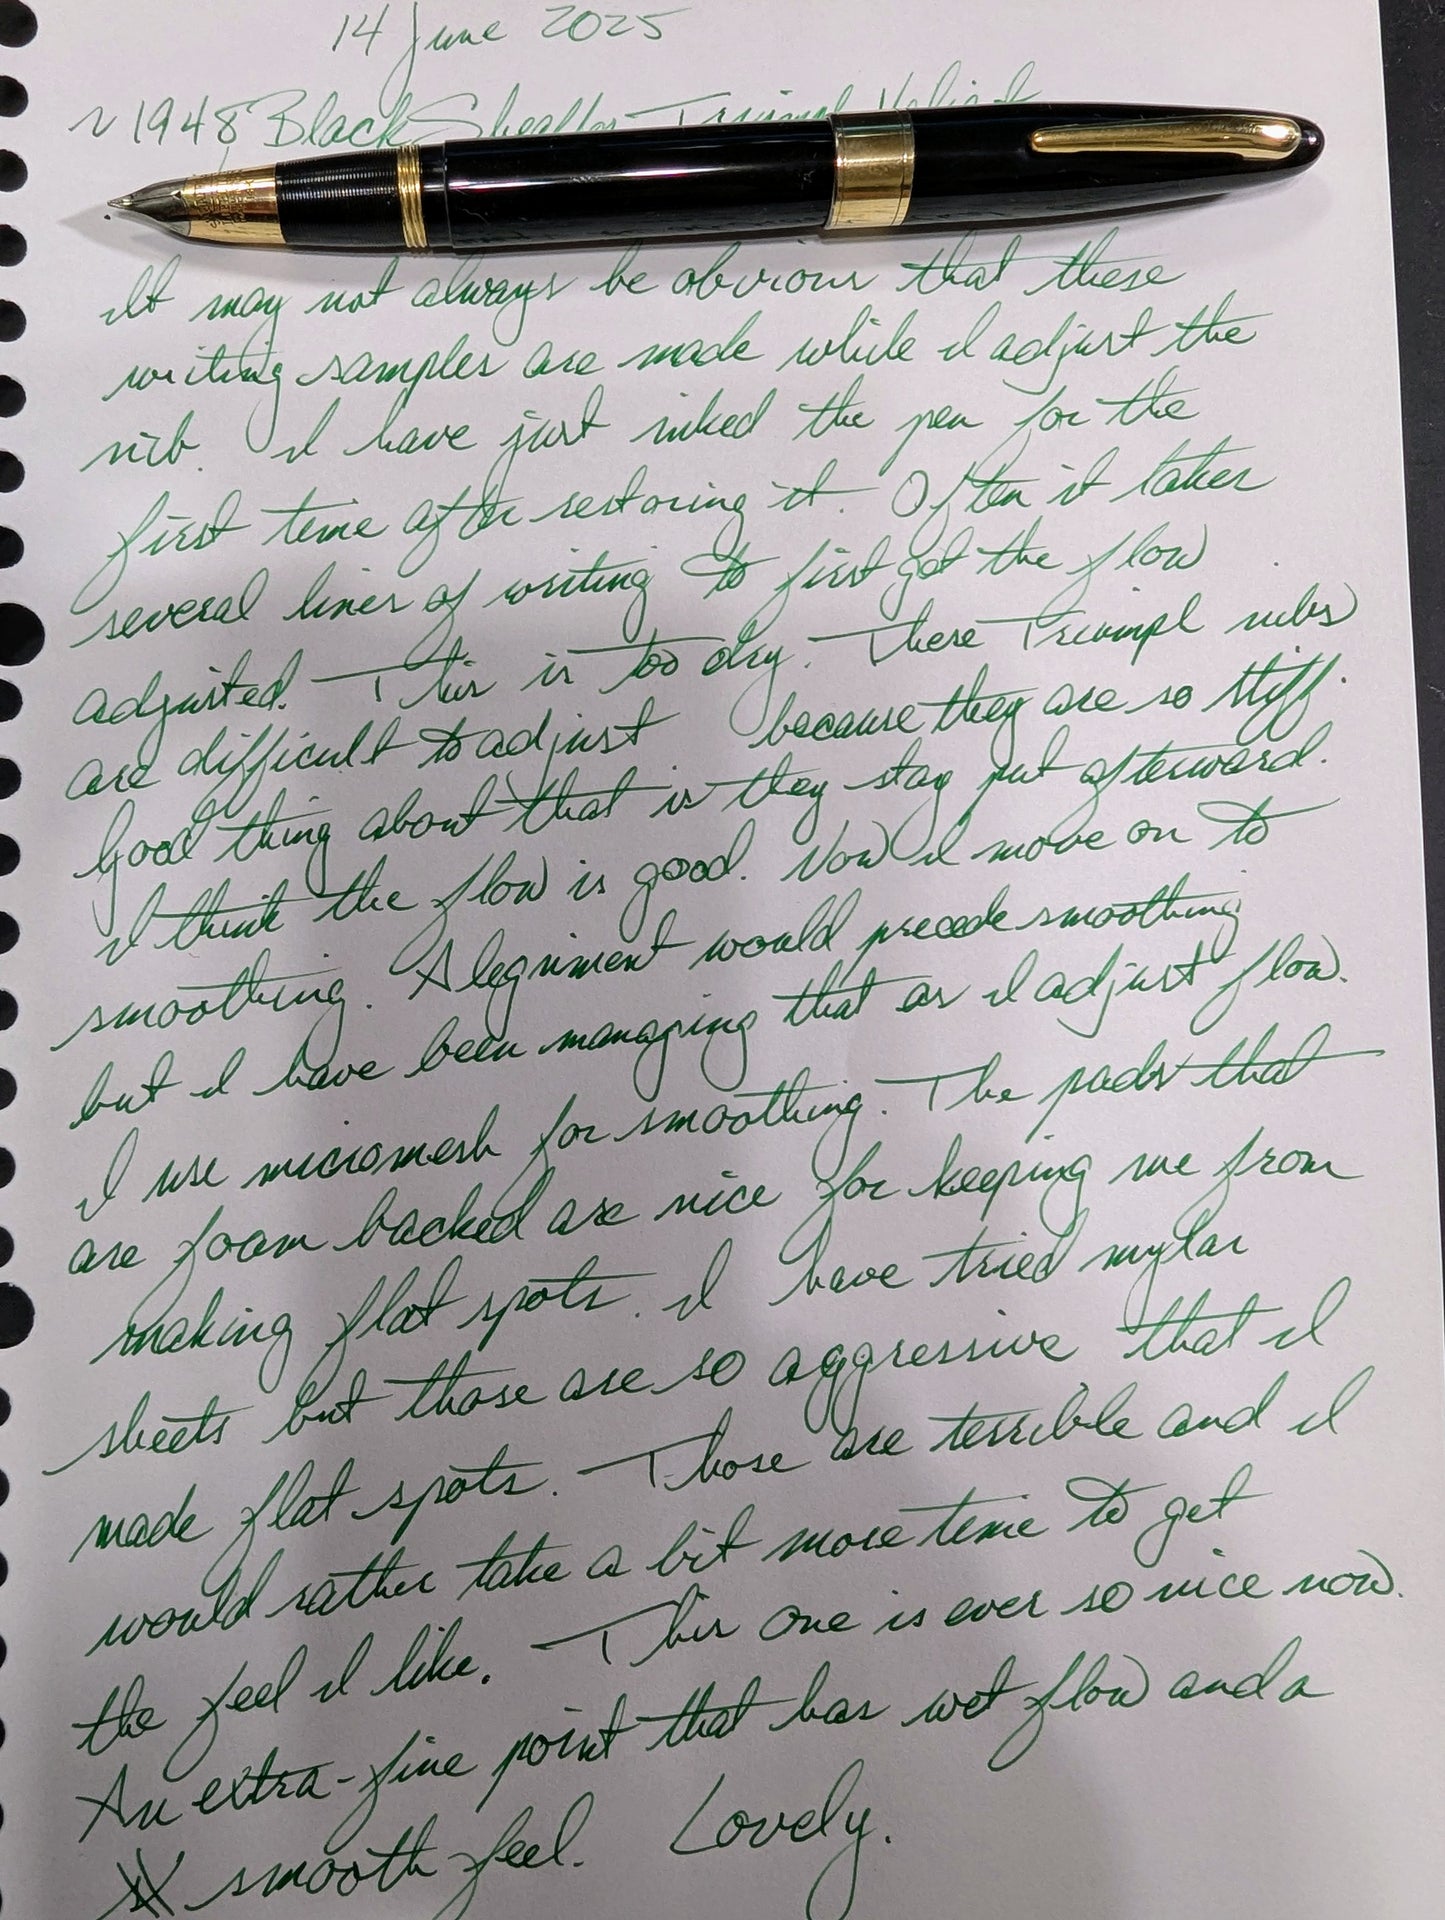 14 June 2025
~1948 Black Sheaffer Triumph Valiant
It may not always be obvious that these
writing samples are made while I adjust the
nib. I have just inked the pen for the
first time after restoring it. Often it takes
several lines of writing to first get the flow
adjusted. This is too dry. These Triumph nibs
are difficult to adjust because they are so stiff.
Good thing about that is they stay put afterward.
I think the flow is good. Now I move on to
smoothing. Alignment would precede smoothing
but I have been managing that as I adjust flow.
I use micromesh for smoothing. The pads that
are foam backed are nice for keeping me from
making flat spots. I have tried mylar
sheets but those are so aggressive that I
made flat spots. Those are terrible and I
would rather take a bit more time to get
the feel I like. This one is ever so nice now.
An extra-fine point that has wet flow and a
smooth feel. Lovely.